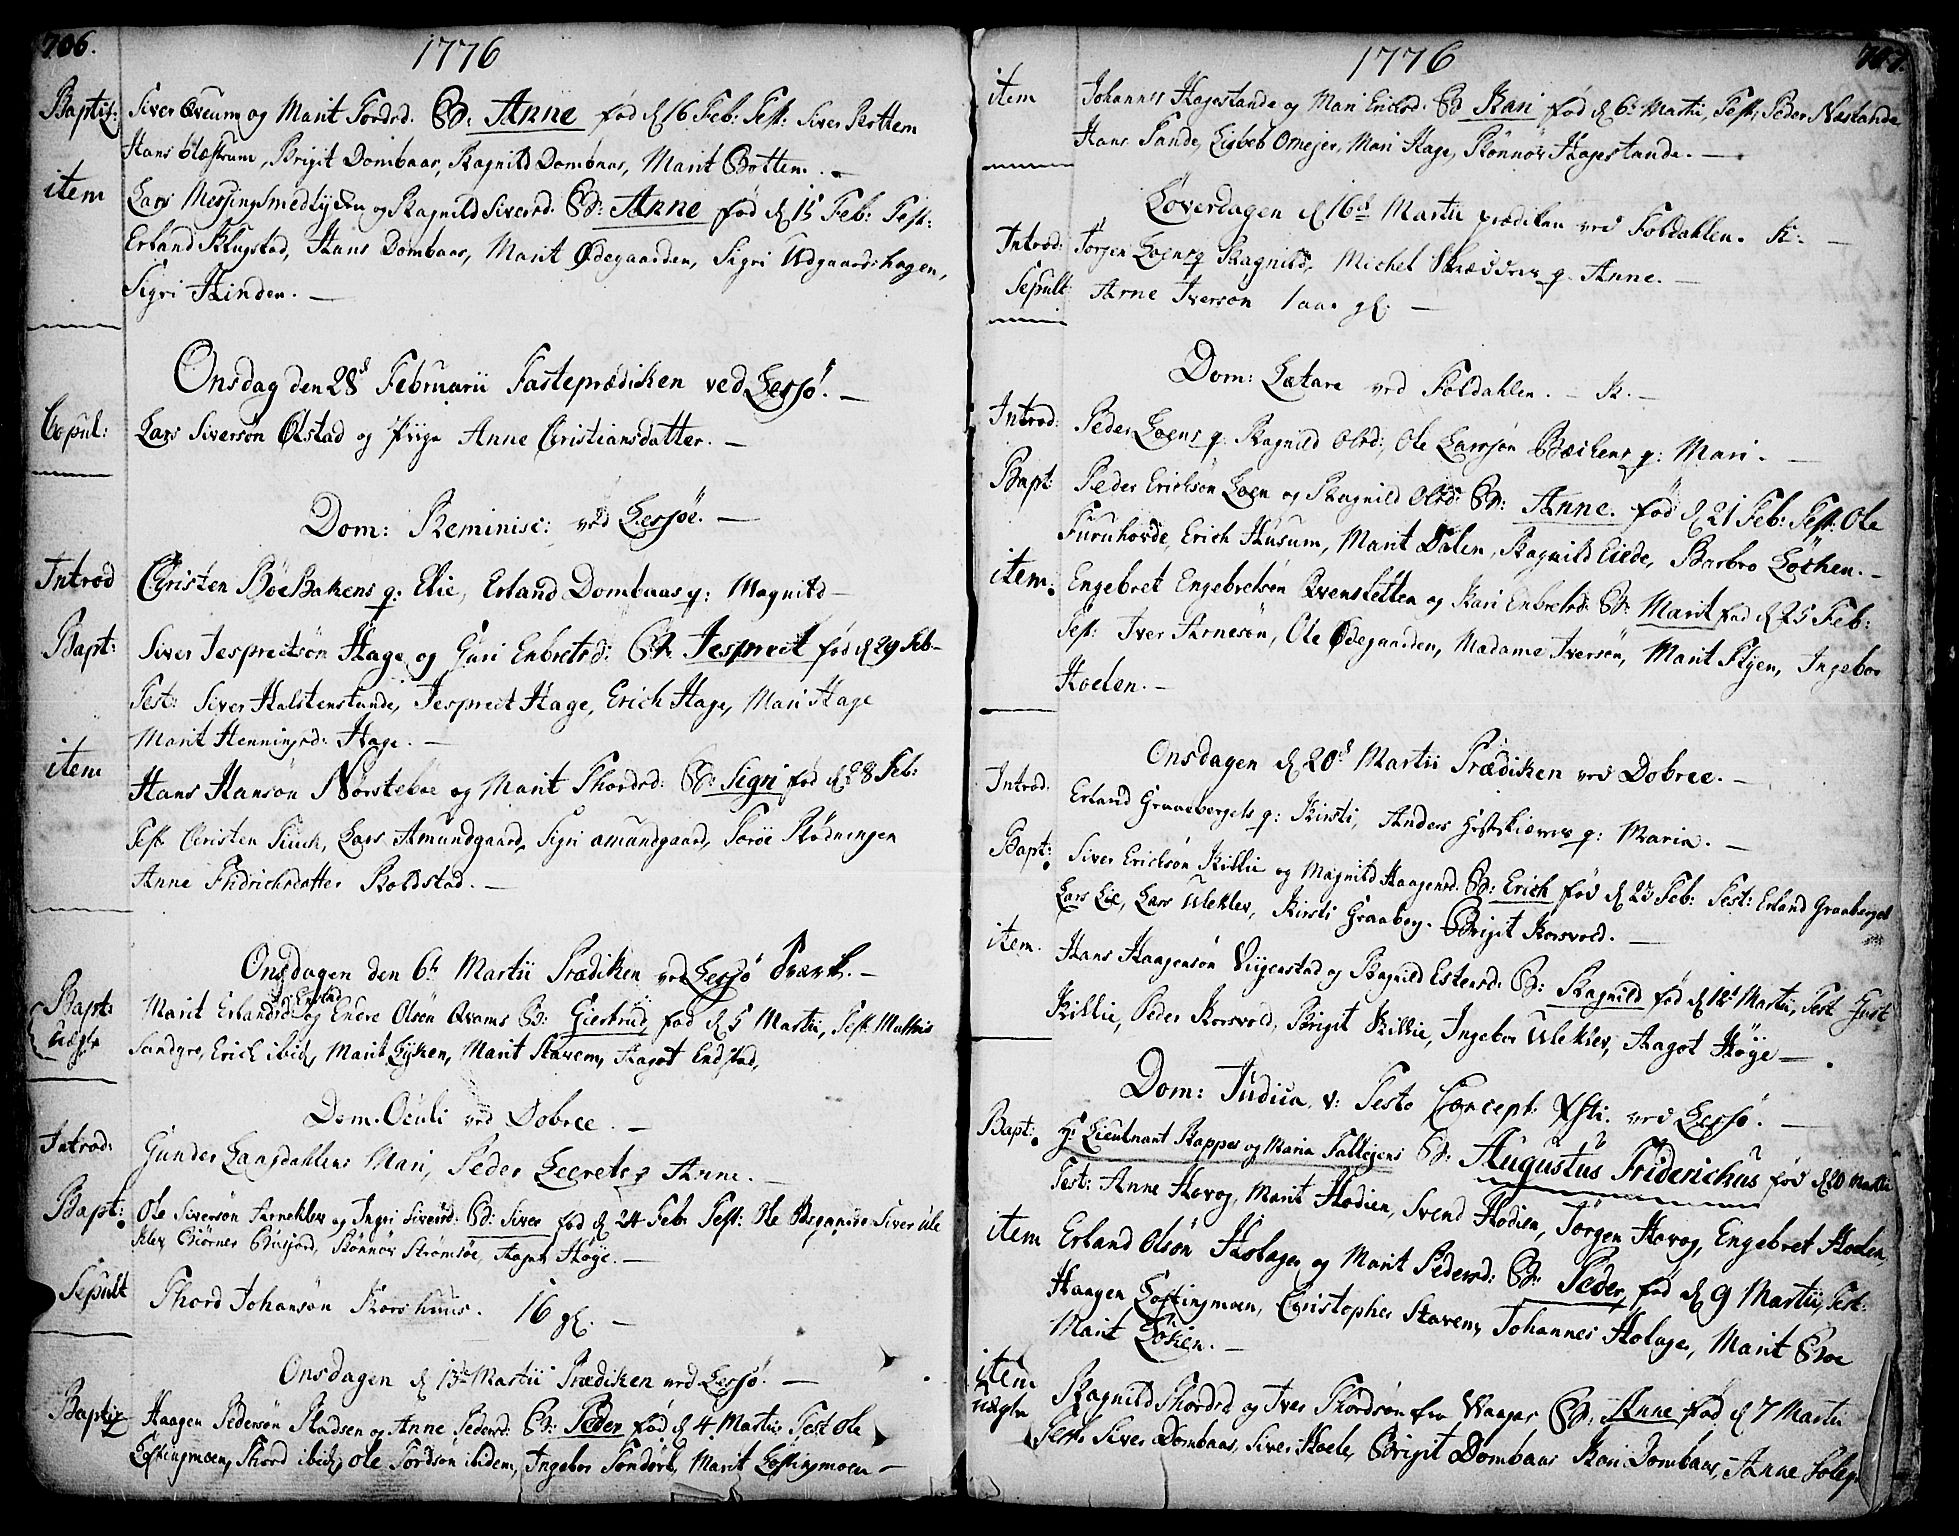 706.
1776
Baptiz: Siver Qveum og Marit Tordsd. B: Anne fød d 16 Feb: Test: Siver Bottem
Hans Blæstrum, Brigit Dombaas, Ragnild Dombaas, Marit Botten. –
item Lars Messingsmedlyken og Ragnild Siversd. B: Anne fød d 15 Feb: Test:
Erland Klugstad, Hans Dombaas, Marit Ødegaarden, Sigri Udgaardshagen,
Sigri Kinden. –
Onsdag den 28d Februarii Fasteprædiken ved Lessø. –
Copul: Lars Siversøn Ølstad og Piige Anne Christiansdatter. –
Dom: Reminisc: ved Lessøe. –
Introd Christen Bøe Bakens q: Elie, Erland Dombaas q: Magnild –
Bapt: Siver Jespredsøn Hage og Guri Enbretsd: B: Jespred fød d 29 Feb–
Test: Siver Halstenstande, Jespred Hage, Erich Hage, Mari Hage
Marit Henningsd: Hage. –
item Hans Hansøn Nørsteboe og Marit Thordsd: B: Sigri fød d 28 Feb:
Test Christen Kiuck, Lars Amundgaard, Sigri amundgaard, Torøe Rødningen
Anne Fridrichsdatter Boldstad. –
Onsdagen den 6te Martii Prædiken ved Lessø Værk. –
Bapt: uægte Marit Erlandsd: Enstad og Endre Olsøn Qvams B: Giertrud, fød d 5 Martii, Test: Mathis
Sandgre, Erich ibid, Marit Lyken, Marit Stavem, Aagot Endstad,
Dom. Oculi ved Dobree. –
Introd: Gunder Langdahlens Mari, Peder Leerets q Anne. –
Bapt: Ole Siversøn Arneklev og Ingri Siversd: B: Siver fød d 24 Febr Test: Ole Siver Ule
klev Giørner Busjord, Rønnøv Strømsøe, Aagot Høye. –
Sepult Thord Johansøn Korshuus. 16 gl. –
Onsdagen d 13de Martii Prædiken ved Lessø. –
Baptiz Haagen Pedersøn Pladsen og Anne Pedersd: B: Peder fød d 4 Martii Test Ole
Loftingmoen, Thord ibid, Ole Tordsøn ibidem, Ingebor Tondørk, Marit Loftingmoen –
707.
1776
item Johannes Hagestande og Mari Erichsd. B Kari fød d 6te Martii, Test; Peder Næstande
Hans Sande, Lisbet Omejer, Mari Hage, Rønnøv Hagestande. –
Løverdagen d 16de Martii prædiken ved Foldahlen. K. –
Introd: Jørgen Loens q Ragnild, Michel Skrædders q. Anne. –
Sepult Arne Iversøn 1 aar gl. –
Dom: Lætare ved Foldahlen. – K. –
Introd: Peder Loens q. Ragnild Olsd:, Ole Larssøn Bækens q: Mari. –
Bapt: Peder Erichsøn Loen og Ragnild Olsd: B: Anne. fød d 21 Feb: Test: Ole
Furuhovde, Erich Husum, Marit Dalen, Ragnild Eide, Barbro Løkken. –
item. Engebret Engebretsøn Qvensletten og Kari Enbretsd: B: Marit fød d 25 Feb:
Test: Iver Arnesøn, Ole Ødegaarden, Madame Iversøn, Marit Styen, Ingebor
Koelen. –
Onsdagen d 20d Martii Prædiken ved Dobree. –
Introd: Erland Graabergets q: Kirsti, Anders q: Maria. –
Bapt: Siver Erichsøn Killie og Magnild Haagensd. B: Erich fød d 23 Feb: Test: Erland Graaberget
Lars Lie, Lars Uleklev, Kirsti Graaberg. Brigit Korsvold. –
item. Hans Haagensøn Viigenstad og Ragnild Estensd. B: Ragnild fød d 12t Martii, Test Gust
Killie, Peder Korsvold, Brigit Killie, Ingebor Uleklev, Aagot Høye –
Dom: Judica. v: Festo Concept: Xsti. ved Lessø. –
Bapt: Hr Lieutnant Rappes og Maria Fallejens B: Augustus Friderichus fød d 20 Martii
Test: Anne Havog, Marit Hodien, Svend Hodien, Jørgen Havog, Engebret Koelen,
item Erland Olsøn Holager og Marit Pedersd: B: Peder, fød d 9 Martii, Test:
Haagen Loftingmoen, Christopher Stavem, Johannes Holage, Marit Boe
Marit Løken. –
item uægte Ragnild Thordsd og Iver Thordsøn fra Waage B: Anne fød d 7 Martii
Test: Siver Dombaas, Siver Hoele, Brigit Dombaas Kari Dombaas, Anne